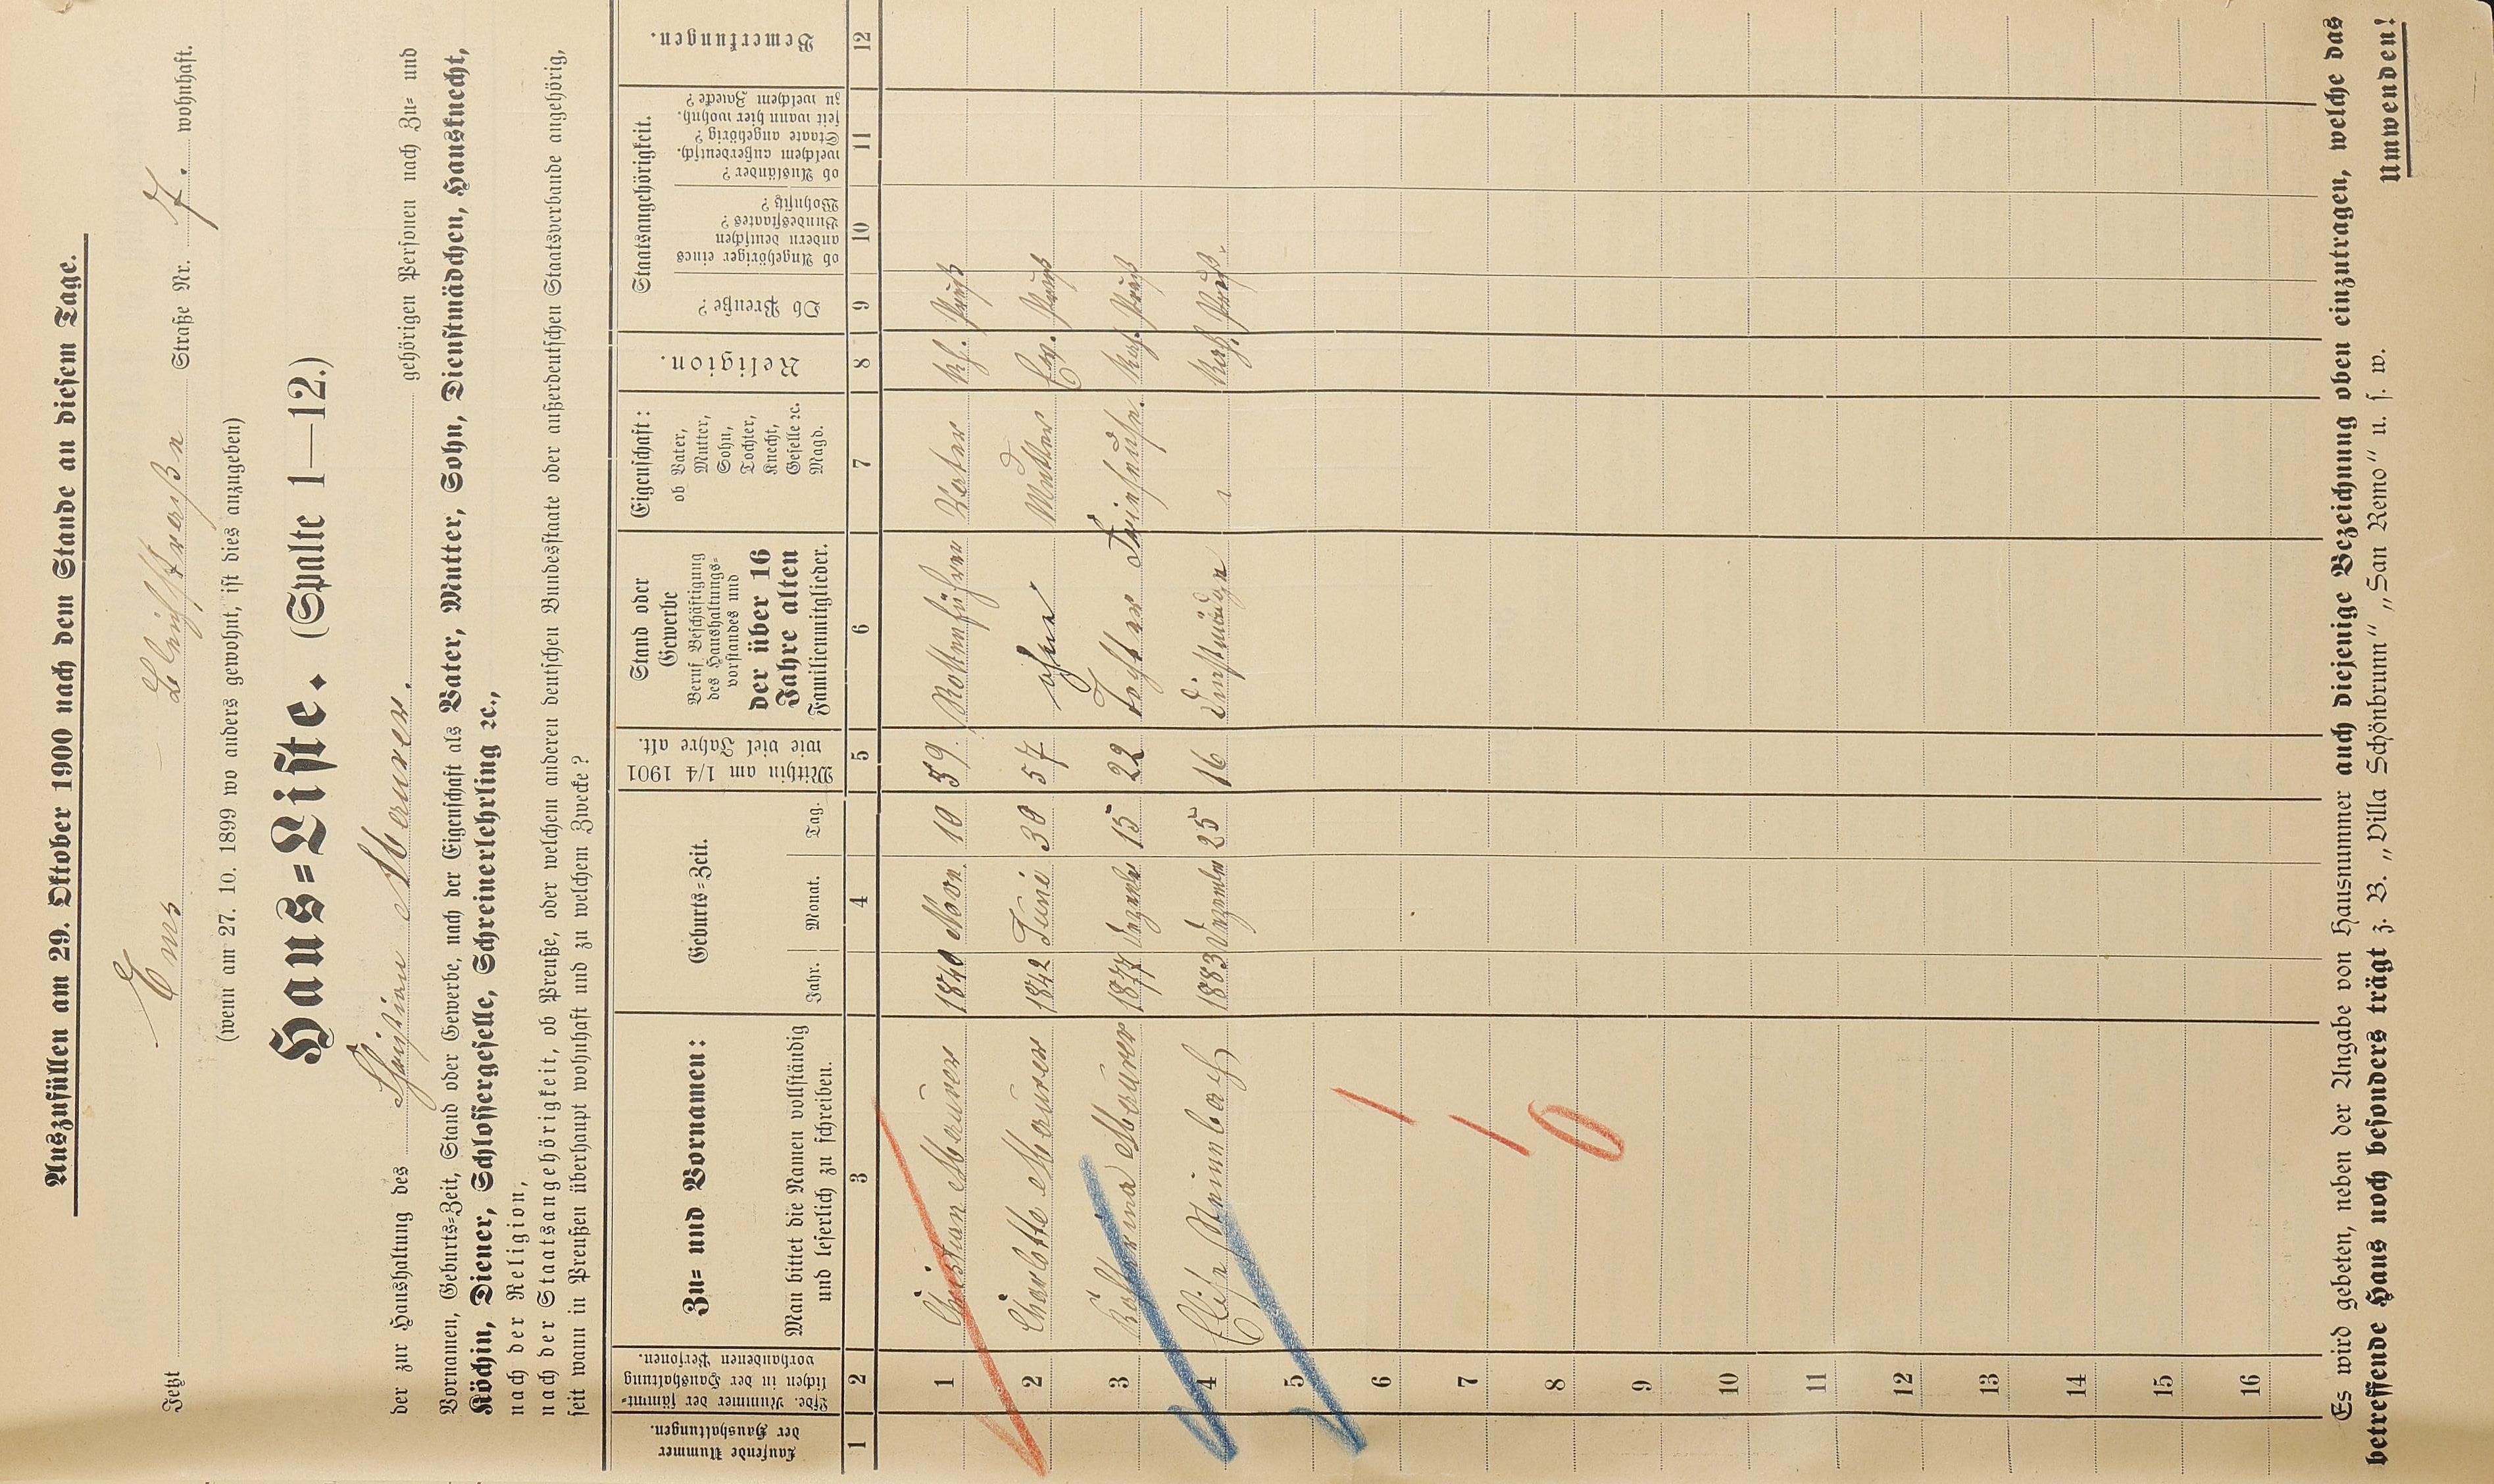 Auszufüllen am 29. Oktober 1900 nach dem Stande an diesem Tage.
Jetzt Ems Bleichstraße Straße Nr. 7. wohnhaft.
(wenn am 27. 10. 1899 wo anders gewohnt, ist dies anzugeben)
Haus=Liste. (Spalte 1—12.)
der zur Haushaltung des Christian Maurer. gehörigen Personen nach Zu= und
Vornamen, Geburts=Zeit, Stand oder Gewerbe, nach der Eigenschaft als Vater, Mutter, Sohn, Dienstmädchen, Hausknecht,
Köchin, Diener, Schlossergeselle, Schreinerlehrling ꝛc.,
nach der Religion,
nach der Staatsangehörigkeit, ob Preuße, oder welchem anderen deutschen Bundesstaate oder außerdeutschen Staatsverbande angehörig,
seit wann in Preußen überhaupt wohnhaft und zu welchem Zwecke?
Laufende Nummer
der Haushaltungen.
Lfde. Nummer der sämmt=
lichen in der Haushaltung
vorhandenen Personen.
Zu= und Vornamen:
Man bittet die Namen vollständig
und leserlich zu schreiben.
Geburts=Zeit.
Jahr. Monat. Tag.
Mithin am 1/4 1901
wie viel Jahre alt.
Stand oder
Gewerbe
Beruf Beschäftigung
des Haushaltungs=
vorstandes und
der über 16
Jahre alten
Familienmitglieder.
Eigenschaft:
ob Vater,
Mutter,
Sohn,
Tochter,
Knecht,
Geselle ꝛc.
Magd.
Religion.
Staatsangehörigkeit.
Ob Preuße?
ob Angehöriger eines
andern deutschen
Bundesstaates?
Wohnsitz?
ob Ausländer?
welchem außerdeutsch.
Staate angehörig?
seit wann hier wohnh.
zu welchem Zwecke?
Bemerkungen.
1 2 3 4 5 6 7 8 9 10 11 12
1 Christian Maurer 1840 Nov. 10 59. Rottenführer Vater Preuß
2 Charlotte Maurer 1842 Juni 30 57 ohne Mutter Ev. Preuß
3 Katharina Maurer 1877 Dezember 15 22 Tochter Preuß
4 Elise Steinebach 1883 Dezember 25 16 Dienstmädchen Kath. Preuß.
5
6
7
8
9
10
11
12
13
14
15
16
1
1
0
Es wird gebeten, neben der Angabe von Hausnummer auch diejenige Bezeichnung oben einzutragen, welche das
betreffende Haus noch besonders trägt z. B. „Villa Schönbrunn“ „San Remo“ u. s. w.
Umwenden!